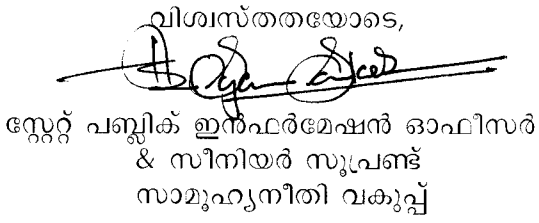 വിശ്വസ്തതയോടെ,
സ്റ്റേറ്റ് പബ്ലിക് ഇൻഫർമേഷൻ ഓഫീസർ
& സീനിയർ സൂപ്രണ്ട്
സാമൂഹ്യനീതി വകുപ്പ്